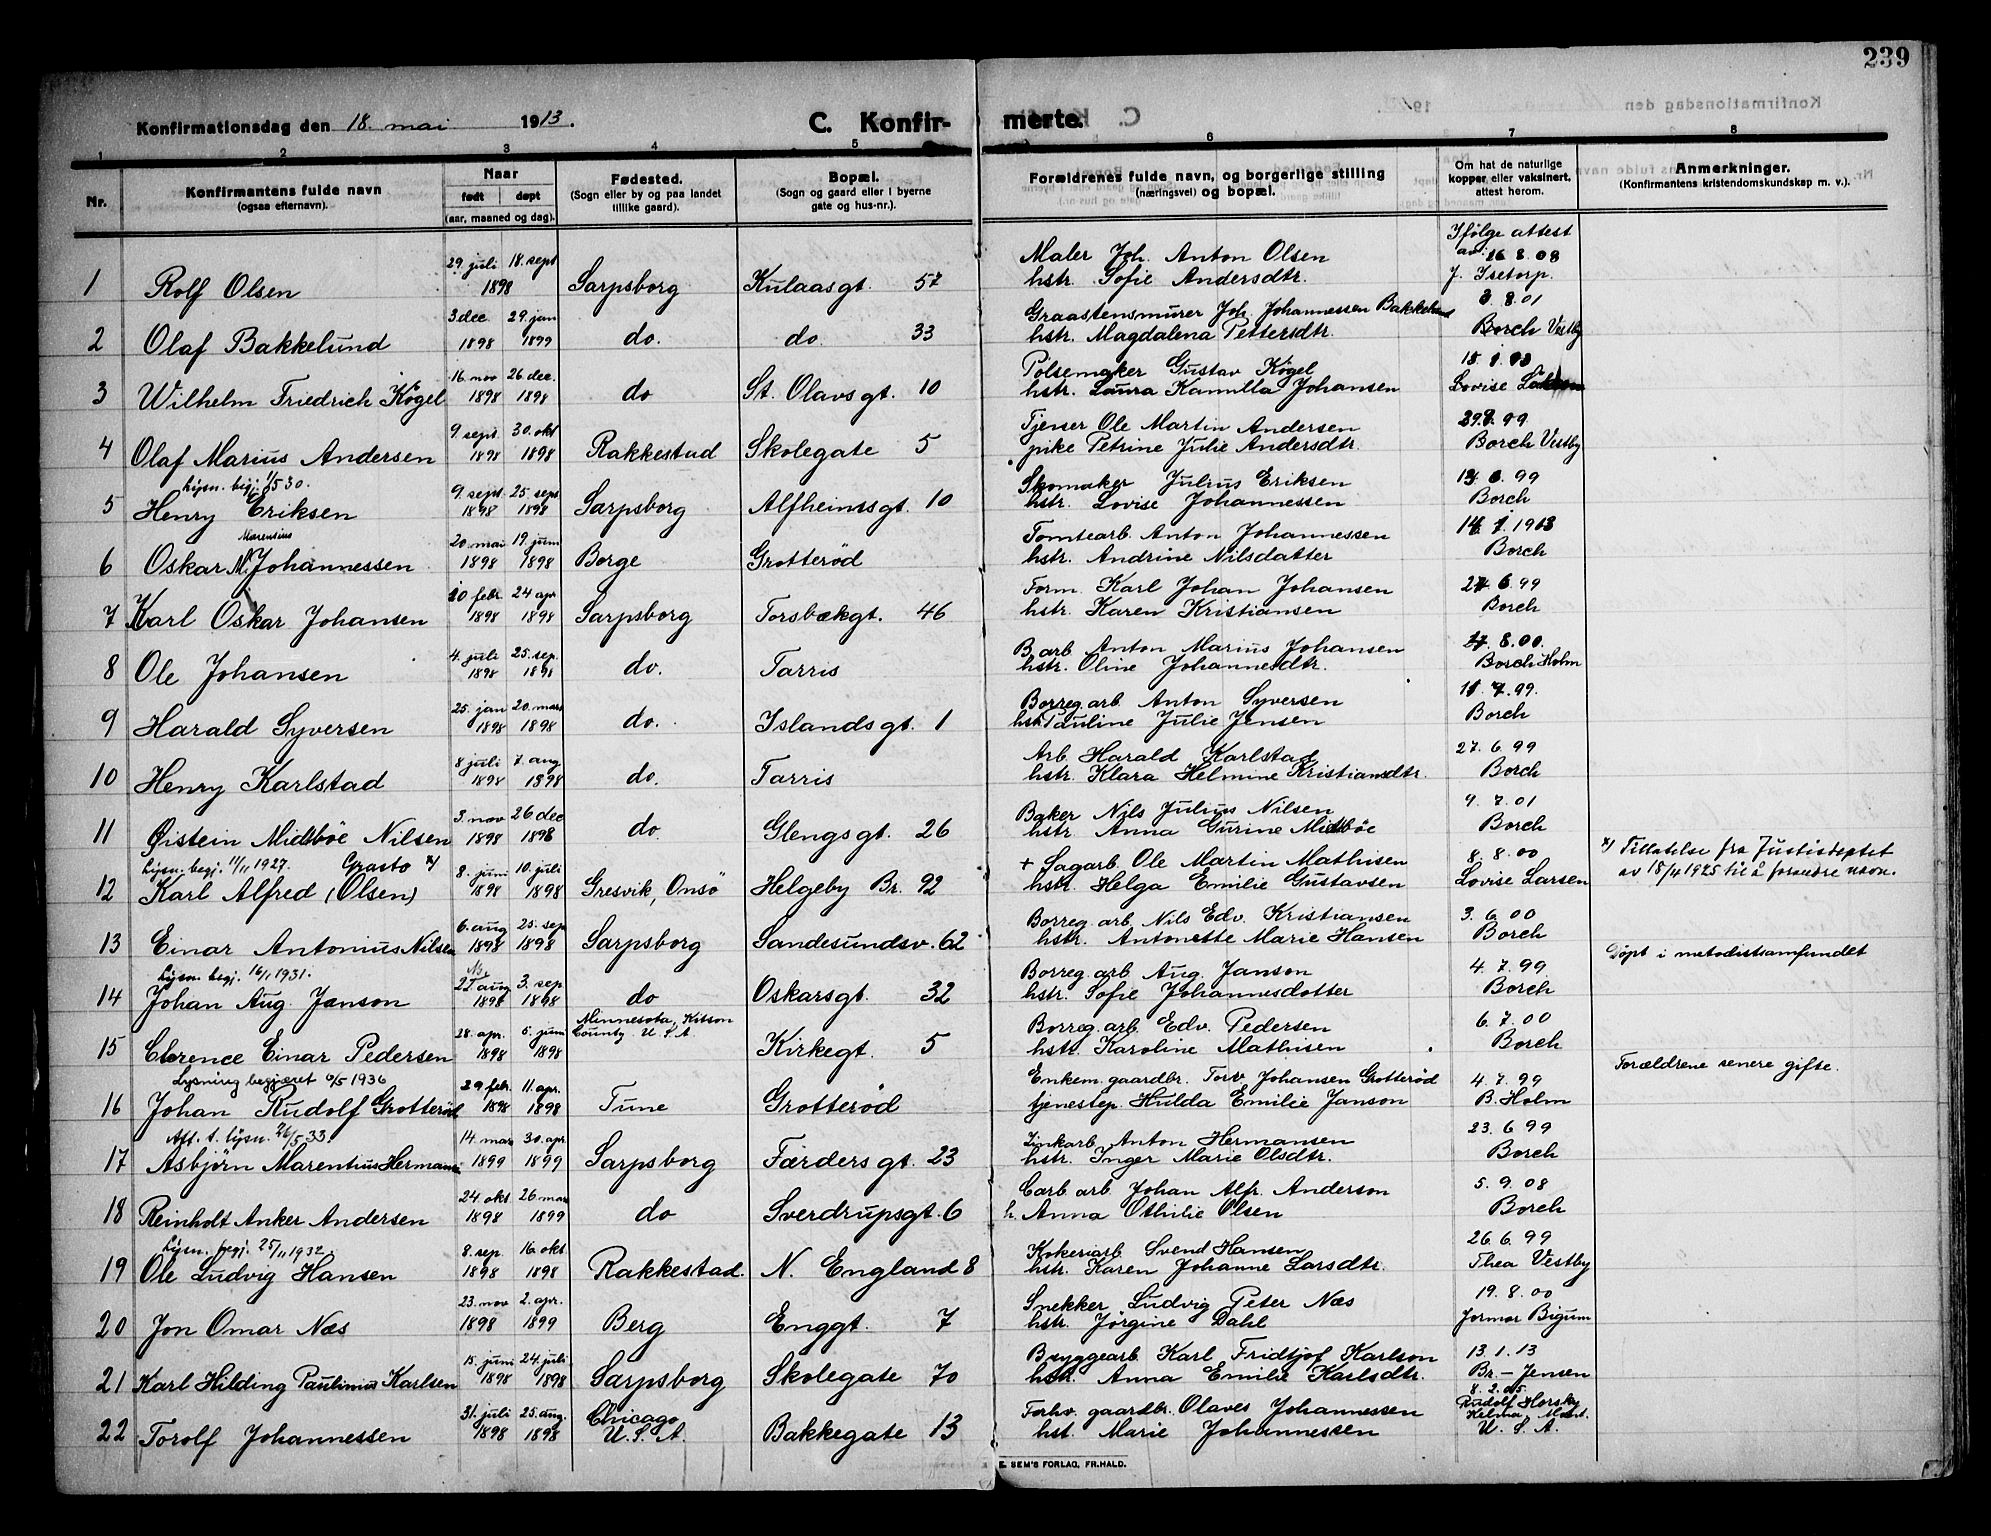 239
Konfirmationsdag den 18. mai 1913.
C. Konfirmerte.
1 2 3 4 5 6 7 8
Nr.
Konfirmantens fulde navn
(ogsaa efternavn).
Naar
født døpt
(aar, maaned og dag).
Fødested.
(Sogn eller by og paa landet
tillike gaard).
Bopæl.
(Sogn og gaard eller i byerne
gate og hus-nr.).
Forældrenes fulde navn, og borgerlige stilling
(næringsvei) og bopæl.
Om hat de naturlige
kopper eller vaksinert,
attest herom.
Anmerkninger.
(Konfirmantens kristendomskundskap m. v.).
29. juli 18. sept Maler Joh. Anton Olsen Ifølge attest
av 16 8. 08
1 Rolf Olsen 1898 Sarpsborg Kulaasgt. 57 hstr. Sofie Andersdtr.
3. dec 29. jan Graastensmurer Joh. Johannessen Bakkelund 3. 8. 01
2 Olaf Bakkelund 1898 1899 do. do. 33 hstr. Magdalena Pettersdtr. Borch Vestby
16. nov 26. dec. Pølsemaker Gustav Kögel
3 Wilhelm Friedrich Kögel 1898 1898 do St. Olavsgt. 10 hstr. Laura Kamilla Johansen Lovise
9. sept. 30. okt Tjener Ole Martin Andersen
4 Olaf Marius Andersen 1898 1898 Rakkestad Skolegate 5 pike Petrine Julie Andersdtr. Borch Vestby
Lysn. begj. 1/5 30. 9. sept. 25. sept Skomaker Julius Eriksen 6. 99
5 Henry Eriksen 1898 1898 Sarpsborg Alfheimsgt. 10 hstr. Lovise Johannessen Borch
Marensius 20. mai 19. juni Tomtearb. Anton Johannessen 1913
6 Oskar M. Johannessen 1898 1898 Borge Grotterød hstr. Andrine Nilsdatter Borch
10 febr. 24 apr Form. Karl Johan Johansen 27. 6 99
7 Karl Oskar Johansen 1898 1898 Sarpsborg Torsbækgt. 46 hstr. Karen Kristiansen Borch
4. juli 25. sep. B. arb. Anton Marius Johansen 8. 00.
8 Ole Johansen 1898 1898 do. Tarris hstr. Oline Johannesdtr. Borch Holm
25. jan 20. mars Borreg. arb. Anton Syversen 11. 7. 99.
9 Harald Syversen 1898 1898 do. Islandsgt. 1 hstr. Pauline Julie Jensen Borch
8 juli 7. aug Arb. Harald Karlstad 27. 6. 99
10 Henry Karlstad 1898 1898 do. Tarris hstr. Klara Helmine Kristiansdtr. Borch
3. nov 26 dec Baker Nils Julius Nilsen 9. 7. 01
11 Øistein Midtbøe Nilsen 1898 1898 do. Glengsgt. 26 hstr. Anna Gurine Midtbøe Borch
Lysn. begj. 11/11 1927. Grasto x) 8. juni 10. juli + Sagarb. Ole Martin Mathisen 8. 8. 00 x) Tillatelse fra Justisdeptet
12 Karl Alfred (Olsen) 1898 1898 Gresvik, Onsø Helgeby Br. 92 hstr. Helga Emilie Gustavsen Lovise Larsen av 18/4 1925 til å forandre navn.
6. aug 25. sep Borreg. arb. Nils Edv. Kristiansen 3. 6. 00
13 Einar Antonius Nilsen 1898 1898 Sarpsborg Sandesundsv. 62 hstr. Antonette Marie Hansen Borch
Lysn. begj. 16/1 1931. aug 3. sep Borreg. arb. Aug. Janson 4. 7. 99 Døpt i metodistsamfundet
14 Johan Aug. Janson 1898 1898 do Oskarsgt. 32 hstr. Sofie Johannesdotter Borch
28. apr. 5. juni Minnesota, Kitson Borreg. arb. Edv. Pedersen 6. 7. 00
County U. S. A
15 Clarence Einar Pedersen 1898 1898 Kirkegt. 5 hstr. Karoline Mathisen Borch
Lysning begjæret 6/5 1936 29 febr. 11. apr. Enkem. gaardbr. Torv. Johansen Grotterød 4. 7. 99 Forældrene senere gifte.
16 Johan Rudolf Grotterød 1898 1898 Tune Grotterød tjenestep. Hulda Emilie Janson B. Holm
Att. t. lysn. 26/5 33. 14. mars 30. apr. Zinkarb. Anton Hermansen 23. 6 99
17 Asbjørn Marentius Hermansen 1899 1899 Sarpsborg Færdersgt. 23 hstr. Inger Marie Olsdtr. Borch
24. okt. 26. mars Carb. arb. Johan Alfr. Anderson 5. 9. 08
18 Reinholt Anker Andersen 1898 1899 do Sverdrupsgt. 6 h. Anna Othilie Olsen Borch
Lysn. begj. 25/11 1932. 8. sep. 16. okt. Kokeriarb. Svend Hansen 26. 6. 99
19 Ole Ludvig Hansen 1898 1898 Rakkestad. N. England 8 hstr. Karen Johanne Larsdtr. Thea Vestby
23. nov 2. apr. Snekker Ludvig Peter Næs 19. 8. 00
20 Jon Omar Næs 1898 1899 Berg Enggt. 7 hstr. Jørgine Dahl Jormor Bigum
15. juni 24. juli Bryggearb. Karl Fridtjof Karlson 13. 1. 13
21 Karl Hilding Paulinius Karlsen 1898 1898 Sarpsborg Skolegate 70 hstr. Anna Emilie Karlsdtr. Br. - Jensen
31. juli 25. aug. Chicago Forhv. gaardbr. Olaves Johannessen 8. 2. 05.
Rudolf Horsky
22 Torolf Johannessen 1898 1898 U. S. A. Bakkegate 13 hst. Marie Johannessen U. S. A.
E. SEM'S FORLAG, FR.HALD.